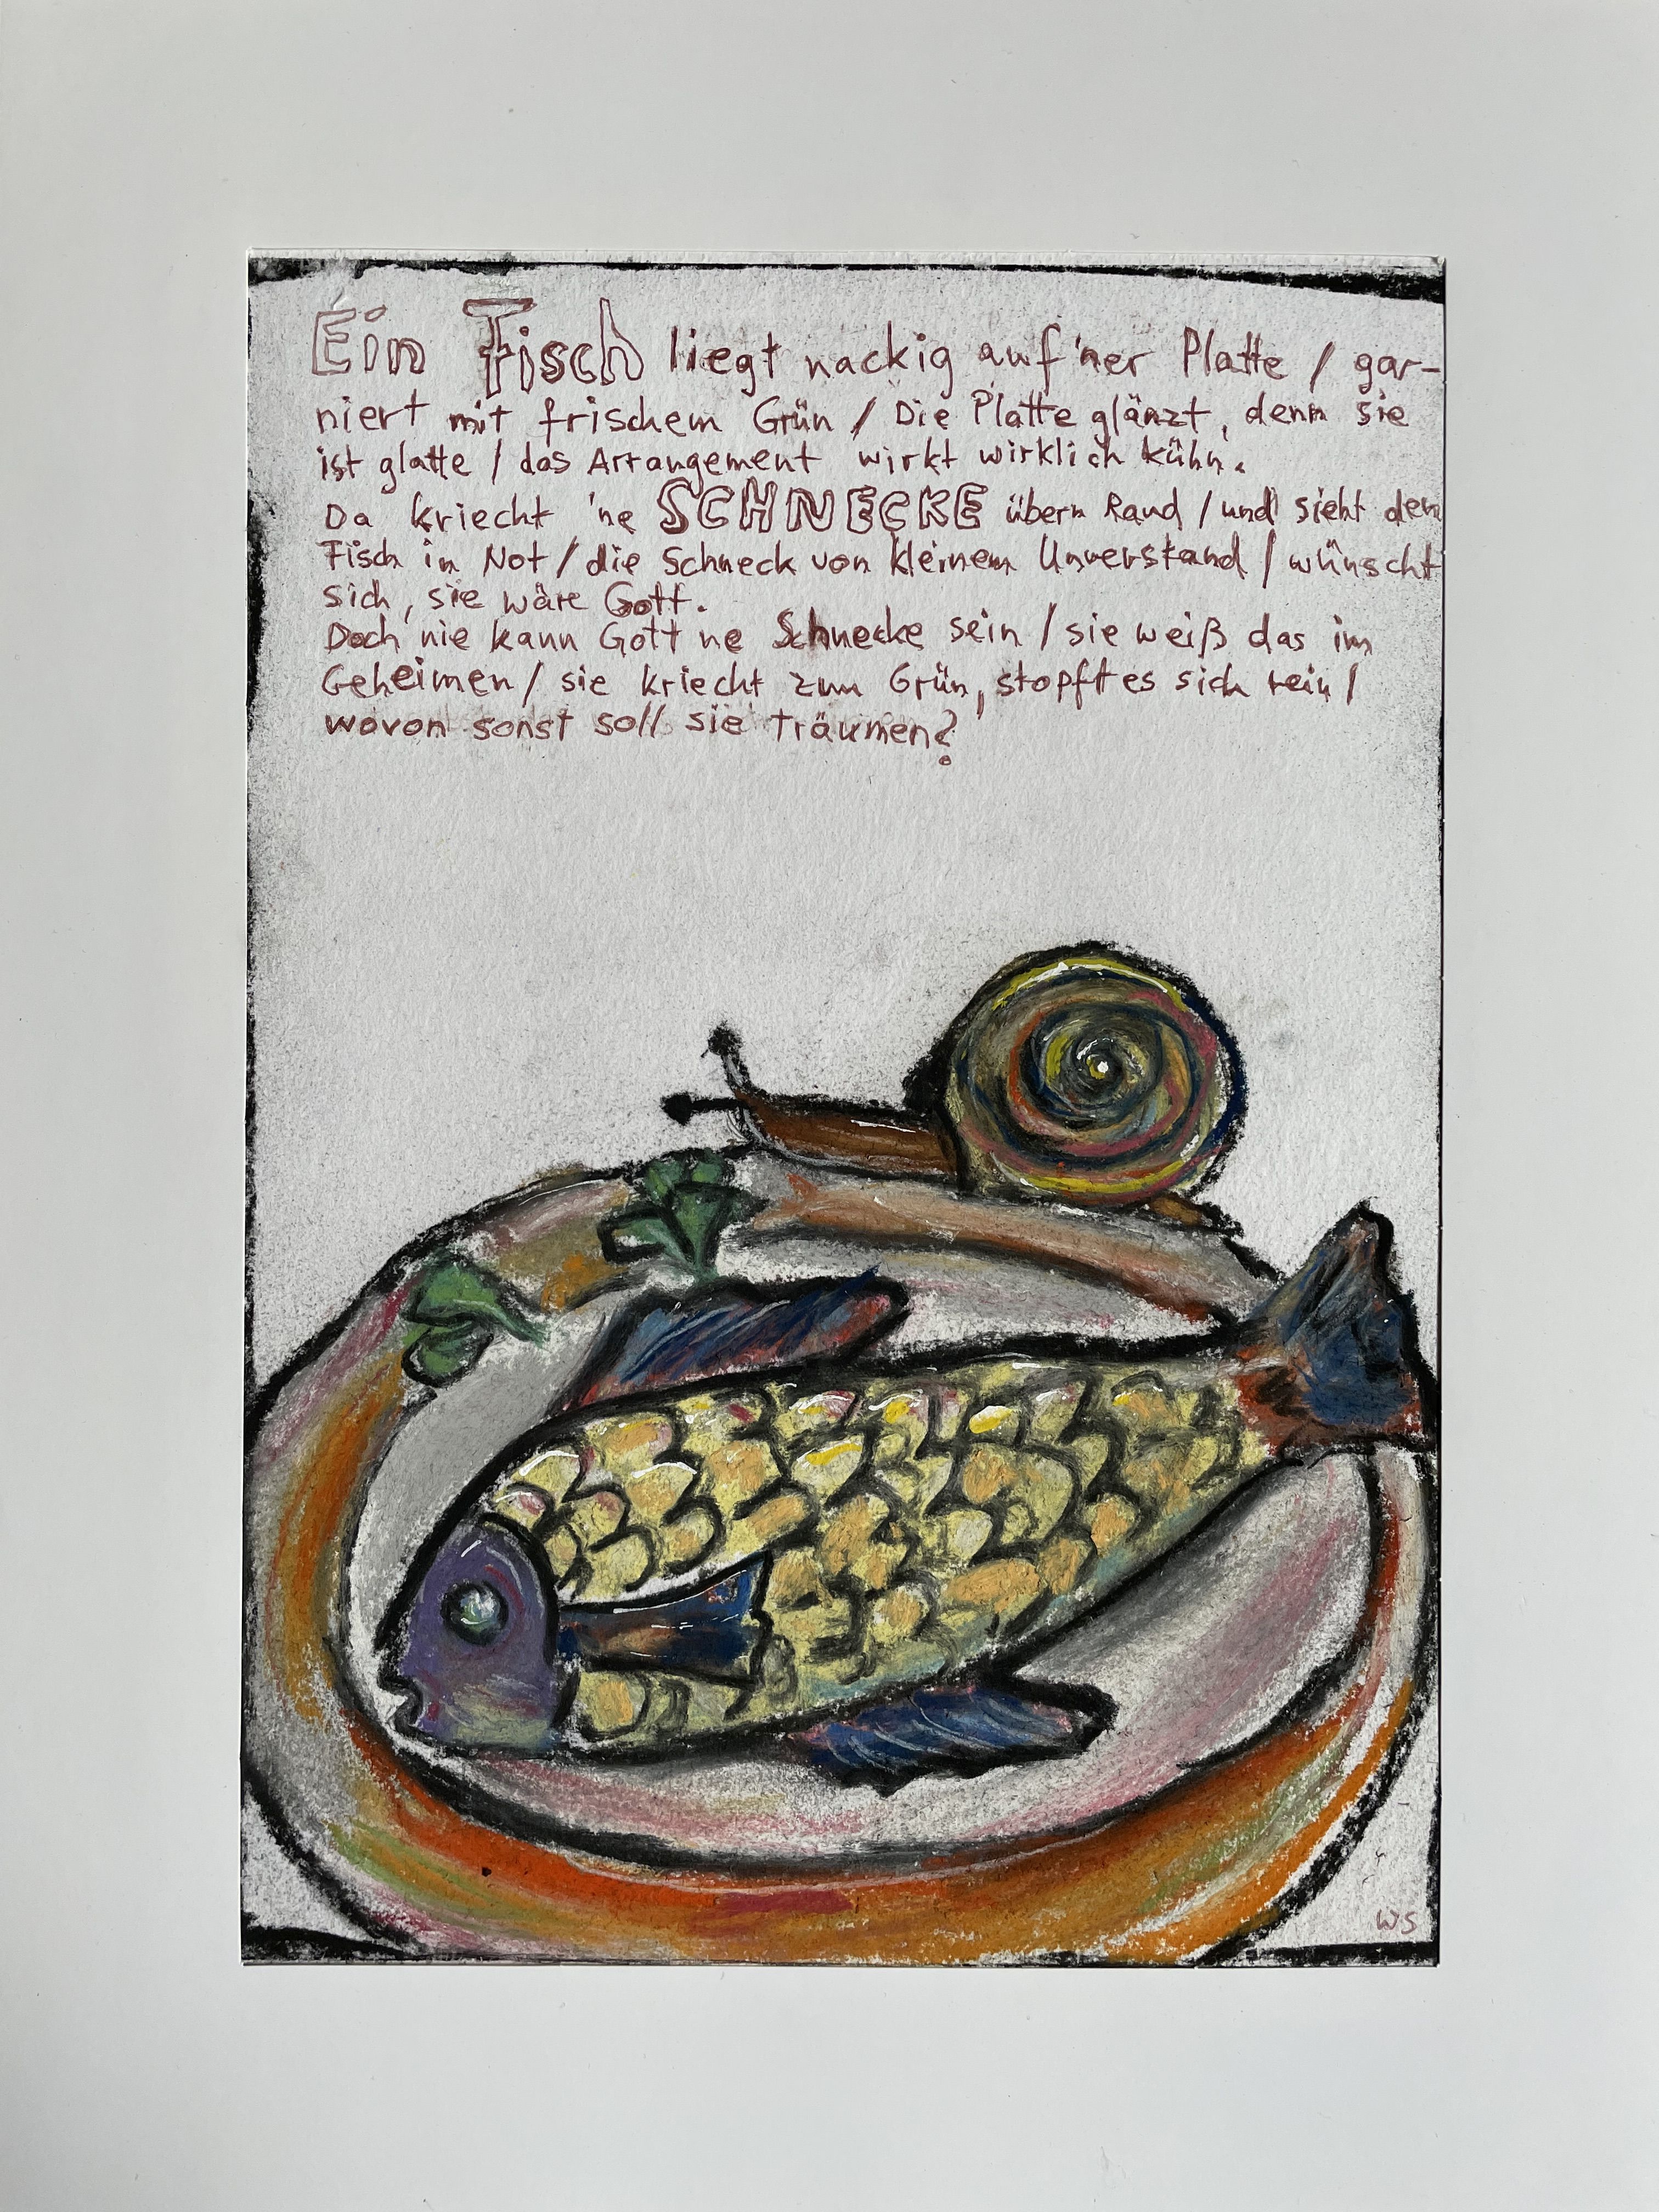 Ein Fisch liegt nackig auf 'ner Platte / gar-
niert mit frischem Grün / Die Platte glänzt, denn sie
ist glatte / das Arrangement wirkt wirklich kühn.
Da kriecht 'ne SCHNECKE übern Rand / und sieht den
Fisch in Not / die Schneck von kleinem Unverstand / wünscht
sich, sie wäre Gott.
Doch nie kann Gott ne Schnecke sein / sie weiß das im
Geheimen / sie kriecht zum Grün, stopft es sich rein /
wovon sonst soll sie träumen?
WS